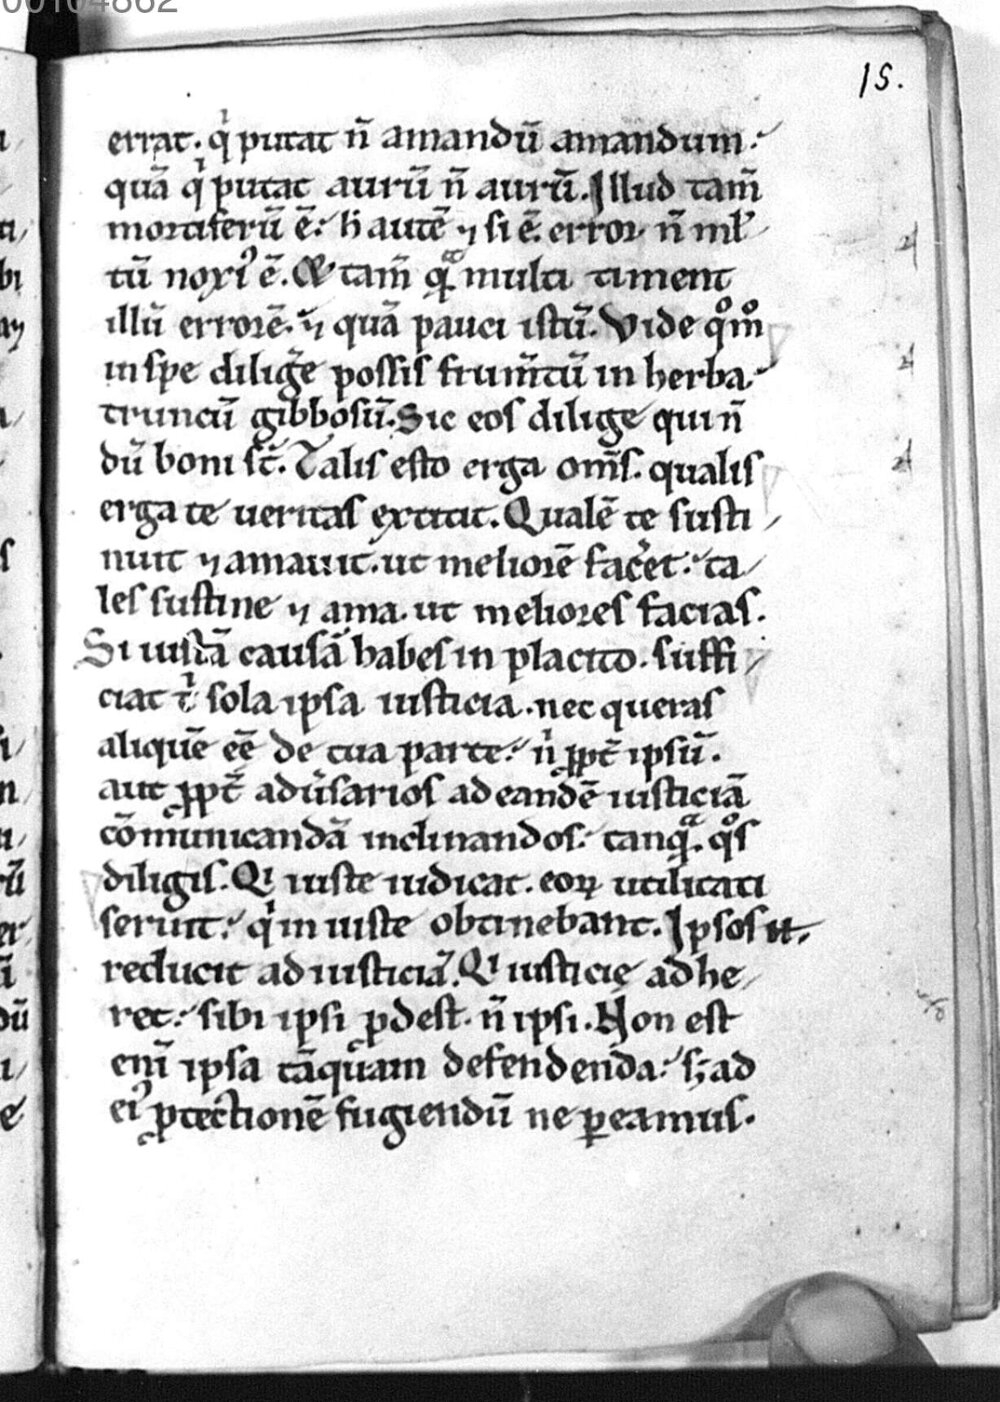 00104862
15.
errat. qͥ putat n̄ amandū amandum.
quā qͥ putat aurū n̄ aurū. Illud tam̄
mortiferū ē. h̄ autē ⁊ si ē error n̄ ml̄
tū noxiꝰ ē. Et tam̄ qͣ multi timent
illū errorē. ⁊ quā pauci istū. Vide qͦmͦ
in spe diligr̄e possis frum̄tū in herba.
truncū gibbosū. Sic eos dilige qui n̄
dū boni st̄. Talis esto erga om̄s. qualis
erga te ueritas extitit. Qualē te susti
nuit ⁊ amauit. ut meliorē fac̄et. ta
les sustine ⁊ ama. ut meliores facias.
Si iustā causā habes in placito. suffi
ciat tͥ sola ipsa iusticia. nec queras
aliquē eē de tua parte. nͥ ꝓpt̄ ipsū.
aut ꝓpt̄ adūsarios ad eandē iusticiā
cōmunicandā inclinandos. tanqͣ. qͦs
diligis. Qͥ iuste iudicat. eoꝝ utilitati
seruit. qͥ iniuste obtinebant. Ipsos
reducit ad iusticiā. Qͥ iusticię adhe
ret. sibi ipsi ꝓdest. n̄ ipsi. Non est
eni ̄ ipsa tāquam defendenda. sꝫ ad
eiꝰ ꝓtectionē fugiendū ne ꝑeamus.